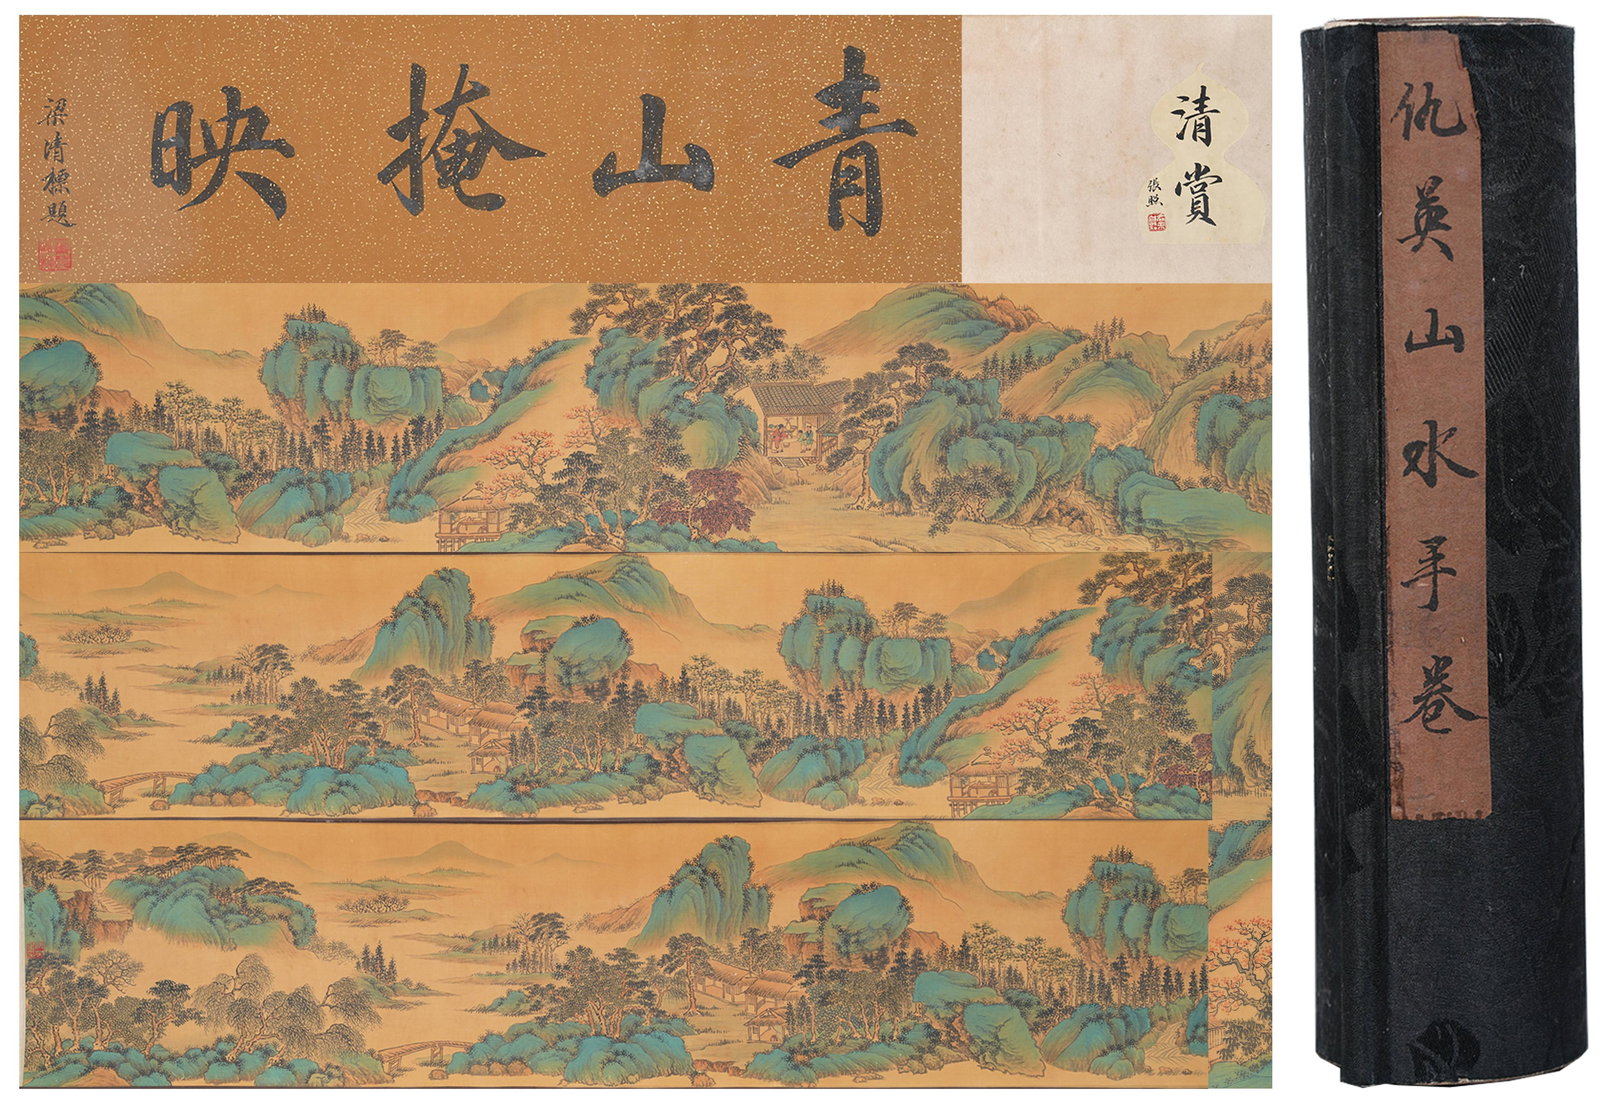 青山掩映
梁清標題
清賞
張照
仇英山水手卷